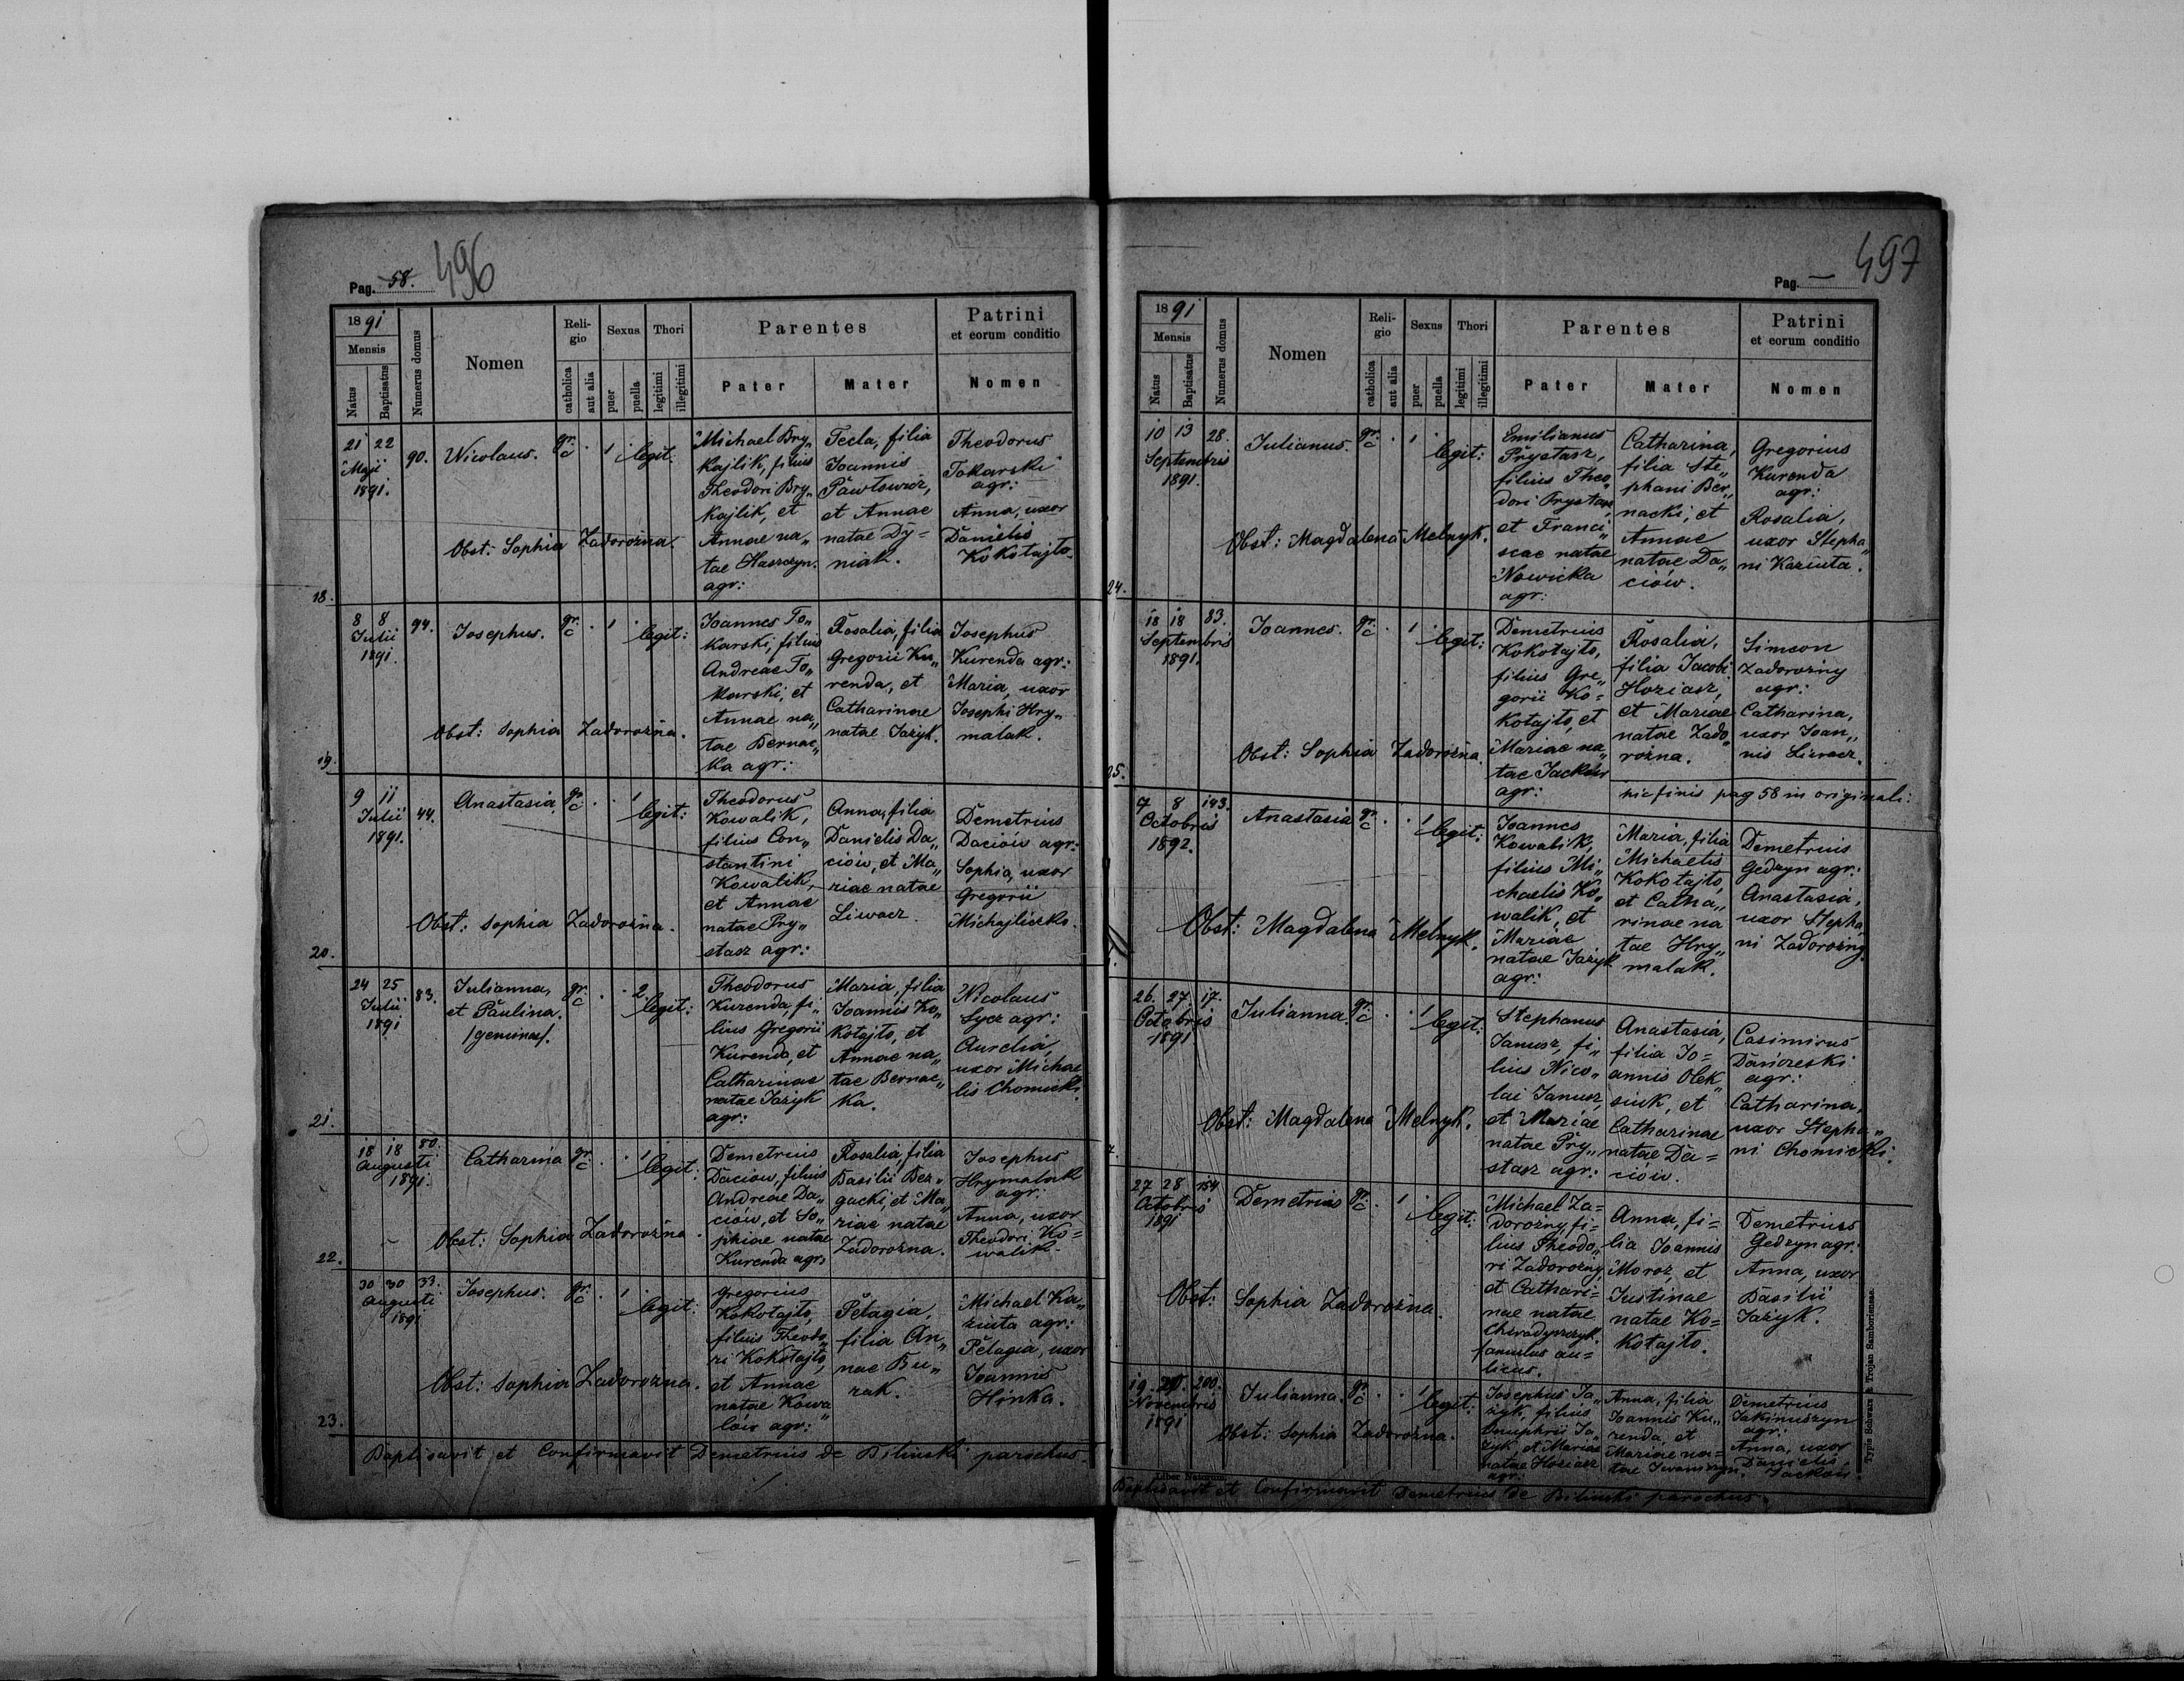 Pag. 58. 496
1891
Mensis
Natus
Baptisatus
Numerus domus
Nomen
Religio
catholica
aut alia
Sexus
puer
puella
Thori
legitimi
illegitimi
Parentes
Pater
Mater
Patrini
et eorum conditio
Nomen
18.
21 22
Maji
1891.
90.
Nicolaus.
gr: c
. 1 .
legit:
Michael Bry„
kajlik, filius
Theodori Bry„
kajlik, et
Annae na„
tae Haszczyn.
agr:
Tecla, filia
Joannis
Pawłowicz,
et Annae
natae Dy=
niak.
Theodorus
Tokarski
agr:
Anna, uxor
Danielis
Kokotajło.
Obst: Sophia Zadorożna.
19.
8 8
Julii
1891.
94.
Josephus.
gr: c
. 1 .
legit:
Joannes To„
karski, filius
Andreae To„
karski, et
Annae na„
tae Bernac„
ka agr:
Rosalia, filia
Gregorii Ku„
renda, et
Catharinae
natae Jażyk.
Josephus
Kurenda agr:
Maria, uxor
Josephi Hry„
malak.
Obst: Sophia Zadorożna.
20.
9 11
Julii
1891.
44.
Anastasia
gr: c
. . 1
legit:
Theodorus
Kowalik,
filius Con„
stantini
Kowalik,
et Annae
natae Pry„
stasz agr:
Anna, filia
Danielis Da„
ciów, et Ma„
riae natae
Liwacz.
Demetrius
Daciów agr:
Sophia, uxor
Gregorii
Michajliczko.
Obst: Sophia Zadorożna.
21.
24 25
Julii
1891
83.
Julianna,
et Paulina.
/geminae/.
gr: c
. . 2
legit:
Theodorus
Kurenda, fi„
lius Gregorii
Kurenda, et
Catharinae
natae Jażyk
agr:
Maria, filia
Joannis Ko„
kotajło, et
Annae na„
tae Bernac„
ka.
Nicolaus
Sycz agr:
Aurelia,
uxor Michae
lis Chomicki.
22.
18 18
Augusti
1891.
80.
Catharina
gr: c
. . 1
legit:
Demetrius
Daciow, filius
Andreae Da„
ciów, et So„
phiae natae
Kurenda agr:
Rosalia, filia
Basilii Bez„
gacki, et Ma„
riae natae
Zadorożna.
Josephus
Hrymalak
agr:
Anna, uxor
Theodori Ko=
walik.
Obst: Sophia Zadorożna.
23.
30 30
Augusti
1891
33.
Josephus.
gr: c
. 1 .
legit:
Gregorius
Kokotajło,
filius Theodo„
ri Kokotajło,
et Annae
natae Kowa„
lów agr:
Pelagia,
filia An„
nae Bu„
rak.
Michael Ka„
ziuta agr:
Pelagia, uxor
Joannis
Hinka.
Obst: Sophia Zadorożna.
Baptisavit et Confirmavit Demetrius de Biliński parochus.
Pag. — 497
1891
Mensis
Natus
Baptisatus
Numerus domus
Nomen
Religio
catholica
aut alia
Sexus
puer
puella
Thori
legitimi
illegitimi
Parentes
Pater
Mater
Patrini
et eorum conditio
Nomen
24.
10 13
Septembris
1891.
28.
Julianus.
gr: c
. 1 .
legit:
Emilianus
Prystasz,
filius Theo„
dori Prystasz
et Franci„
scae natae
Nowicka
agr:
Catharina,
filia Ste„
phani Ber„
nacki, et
Annae
natae Da„
ciów.
Gregorius
Kurenda
agr:
Rosalia,
uxor Stepha„
ni Kaziuta.
Obst: Magdalena Melnyk.
25.
18 18
Septembris
1891.
83.
Joannes.
gr: c
. 1 .
legit:
Demetrius
Kokotajło,
filius Gre„
gorii Ko=
kotajło, et
Mariae na„
tae Jacków
agr:
Rosalia,
filia Jacobi
Hoziasz,
et Mariae
natae Zado„
rożna.
Simeon
Zadorożny
agr:
Catharina,
uxor Joan„
nis Liwacz.
Obst: Sophia Zadorożna.
hic finis pag 58 in originali:
7 8
Octobris
1892.
143.
Anastasia
gr: c
. . 1
legit:
Joannes
Kowalik,
filius Mi„
chaelis Ko„
walik, et
Mariae
natae Jażyk
agr:
Maria, filia
Michaelis
Kokotajło,
et Catha„
rinae na
tae Hry„
malak.
Demetrius
Gedzyn agr:
Anastasia,
uxor Stepha„
ni Zadorożny.
Obst: Magdalena Melnyk.
26. 27.
Octobris
1891
17.
Julianna.
gr: c
. . 1
legit:
Stephanus
Janusz, fi„
lius Nico„
lai Janusz,
et Mariae
natae Pry„
stasz agr:
Anastasia,
filia Jo=
annis Olek„
siuk, et
Catharinae
natae Da=
ciów.
Casimirus
Daniczeski
agr:
Catharina,
uxor Stepha„
ni Chomicki.
Obst: Magdalena Melnyk.
27 28
Octobris
1891
184
Demetrius
gr: c
. 1 .
legit:
Michael Za=
dorożny, fi=
lius Theodo„
ri Zadorożny,
et Cathari=
nae natae
famulus au=
licus.
Anna, fi=
lia Joannis
Moroz, et
Justinae
natae Ko=
kotajło.
Demetrius
Gedzyn agr:
Anna, uxor
Basilii
Jażyk.
Obst: Sophia Zadorożna.
19. 20.
Novembris
1891
200.
Julianna.
gr: c
. . 1
legit:
Josephus Ja„
żyk, filius
Onuphrii Ja„
żyk, et Mariae
natae Hoziasz
agr:
Anna, filia
Joannis Ku„
renda, et
Mariae na=
tae Iwaniszyn.
Demetrius
Jakimiszyn
agr:
Anna, uxor
Danielis
Jacków.
Obst: Sophia Zadorożna.
Liber Natorum.
Baptisavit et Confirmavit Demetrius de Biliński parochus.
Typis Schwarz & Trojan Samboriensae.